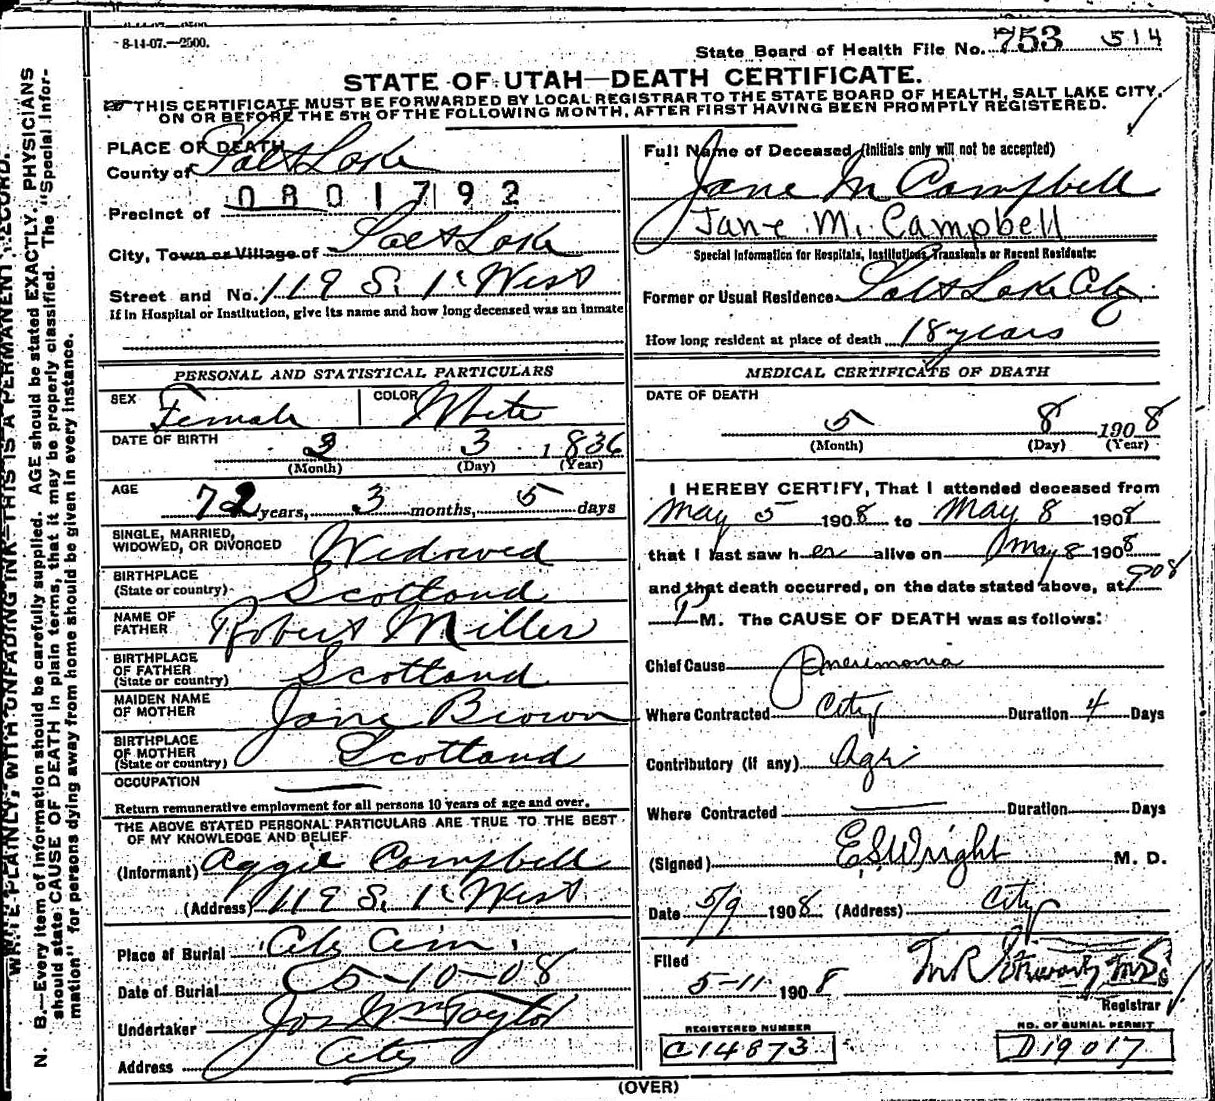 8-14-07.—2500.
State Board of Health File No. 753 514
STATE OF UTAH—DEATH CERTIFICATE.
THIS CERTIFICATE MUST BE FORWARDED BY LOCAL REGISTRAR TO THE STATE BOARD OF HEALTH, SALT LAKE CITY,
ON OR BEFORE THE 5TH OF THE FOLLOWING MONTH, AFTER FIRST HAVING BEEN PROMPTLY REGISTERED.
PLACE OF DEATH
County of Salt Lake
0801792
Precinct of
City, Town or Village of Salt Lake
Street and No. 119 S. 1st West
If in Hospital or Institution, give its name and how long deceased was an inmate
Full Name of Deceased (Initials only will not be accepted)
Jane M Campbell
Jane M. Campbell
Special Information for Hospitals, Institutions, Transients or Recent Residents:
Former or Usual Residence Salt Lake City
How long resident at place of death 18 years
PERSONAL AND STATISTICAL PARTICULARS
SEX Female COLOR White
DATE OF BIRTH 3 1836
(Month) (Day) (Year)
AGE 72 years, 3 months, 5 days
SINGLE, MARRIED,
WIDOWED, OR DIVORCED Widowed
BIRTHPLACE
(State or country) Scotland
NAME OF
FATHER Robert Miller
BIRTHPLACE
OF FATHER
(State or country) Scotland
MAIDEN NAME
OF MOTHER Jane Brown
BIRTHPLACE
OF MOTHER
(State or country) Scotland
OCCUPATION
Return remunerative employment for all persons 10 years of age and over.
THE ABOVE STATED PERSONAL PARTICULARS ARE TRUE TO THE BEST
OF MY KNOWLEDGE AND BELIEF
(Informant) Aggie Campbell
(Address) 119 S. 1st West
Place of Burial City Cem.
Date of Burial 5-10-08
Undertaker Jos Wm Taylor
Address City
MEDICAL CERTIFICATE OF DEATH
DATE OF DEATH
5 8 1908
(Month) (Day) (Year)
I HEREBY CERTIFY, That I attended deceased from
May 5 1908 to May 8 1908
that I last saw her alive on May 8 1908
and that death occurred, on the date stated above, at
P M. The CAUSE OF DEATH was as follows:
Chief Cause Pneumonia
Where Contracted City Duration 4 Days
Contributory (if any) Age
Where Contracted Duration Days
(Signed) E.S. Wright M. D.
Date 5/9 1908 (Address) City
Filed
5-11 1908 M R Stewart, M.D.
Registrar
REGISTERED NUMBER
C14873
NO. OF BURIAL PERMIT
D19017
(OVER)
WRITE PLAINLY, WITH UNFADING INK—THIS IS A PERMANENT RECORD.
N. B.—Every item of information should be carefully supplied. AGE should be stated EXACTLY. PHYSICIANS
should state CAUSE OF DEATH in plain terms, that it may be properly classified. The "Special Infor-
mation" for persons dying away from home should be given in every instance.